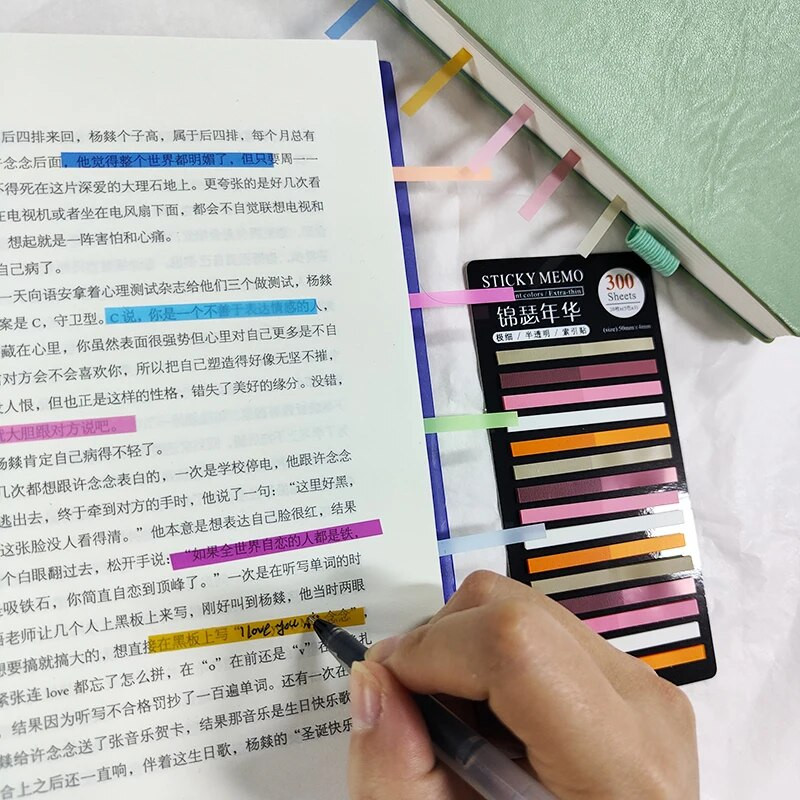 后四排来回，杨燚个子高，属于后四排，每个月总有
念念后面，他觉得整个世界都明媚了，但只要周一一
不得死在这片深爱的大理石地上。更夸张的是好几次看
在电视机或者坐在电风扇下面，都会不自觉联想电视和
想起就是一阵害怕和心痛。
自己病了。
一天向语安拿着心理测试杂志给他们三个做测试，杨燚
案是 C，守卫型。C 说，你是一个不善于表达情感的人，
藏在心里，你虽然表面很强势但心里对自己更多是不自
对方会不会喜欢你，所以把自己塑造得好像无坚不摧，
人恨，但也正是这样的性格，错失了美好的缘分。没错，
就大胆跟对方说吧。
杨燚肯定自己病得不轻了。
几次都想跟许念念表白的，一次是学校停电，他跟许念念
逃出去，终于牵到对方的手时，他说了一句：“这里好黑，
这张脸没人看得清。”他本意是想表达自己脸很红，结果
个白眼翻过去，松开手说：“如果全世界自恋的人都是铁，
是吸铁石，你简直自恋到顶峰了。”一次是在听写单词的时
老师让几个人上黑板上来写，刚好叫到杨燚，他当时两眼
想要搞就搞大的，想直接在黑板上写“I love you 念念”，
紧张连 love 都忘了怎么拼，在“o”在前还是“v”在
，结果因为听写不合格罚抄了一百遍单词。还有一次在
燚给许念念送了张音乐贺卡，结果那音乐是生日快乐歌
合上之后还一直响，伴着这生日歌，杨燚的“圣诞快乐
STICKY MEMO
colors / Extra-thin
锦瑟年华
极细 / 半透明 / 索引贴
300
Sheets
(size) 50mm x 4mm